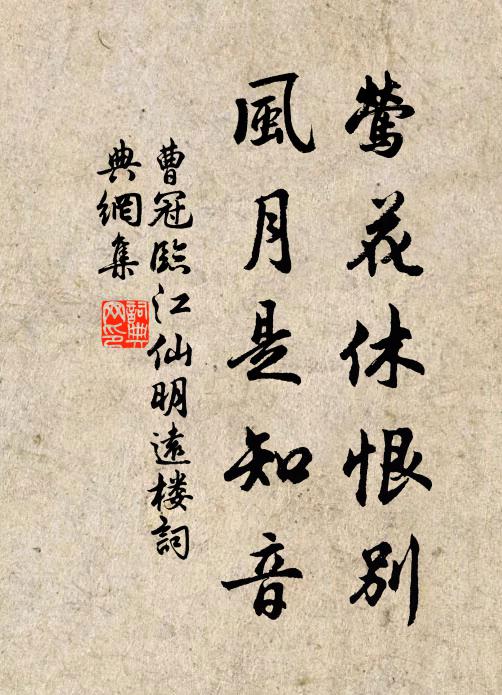 鶯花休恨別
風月是知音
曹冠臨江仙明遠楼詞
典網集
詞典
网印